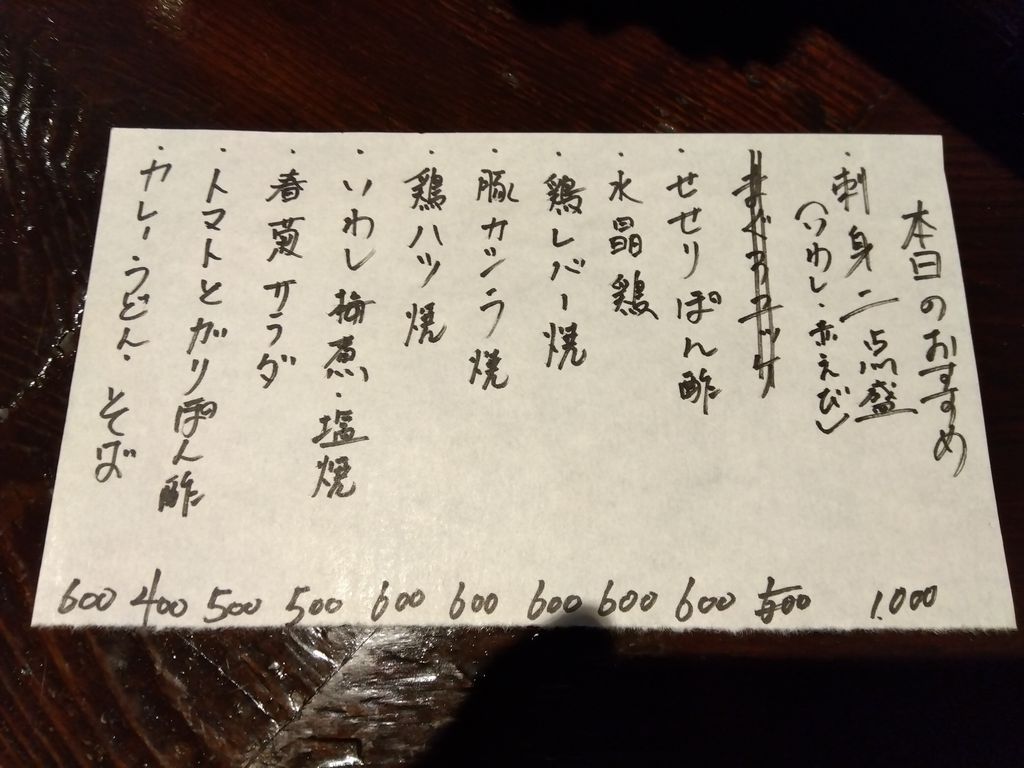 本日のおすすめ
・刺身二点盛 1.000
(いわし・赤えび)
まぐろユッケ 500
・せせりぽん酢 600
・水晶鶏 600
・鶏レバー焼 600
・豚カシラ焼 600
・鶏ハツ焼 600
・いわし梅煮・塩焼 500
・春菊サラダ 500
・トマトとガリぽん酢 400
・カレーうどん・そば 600